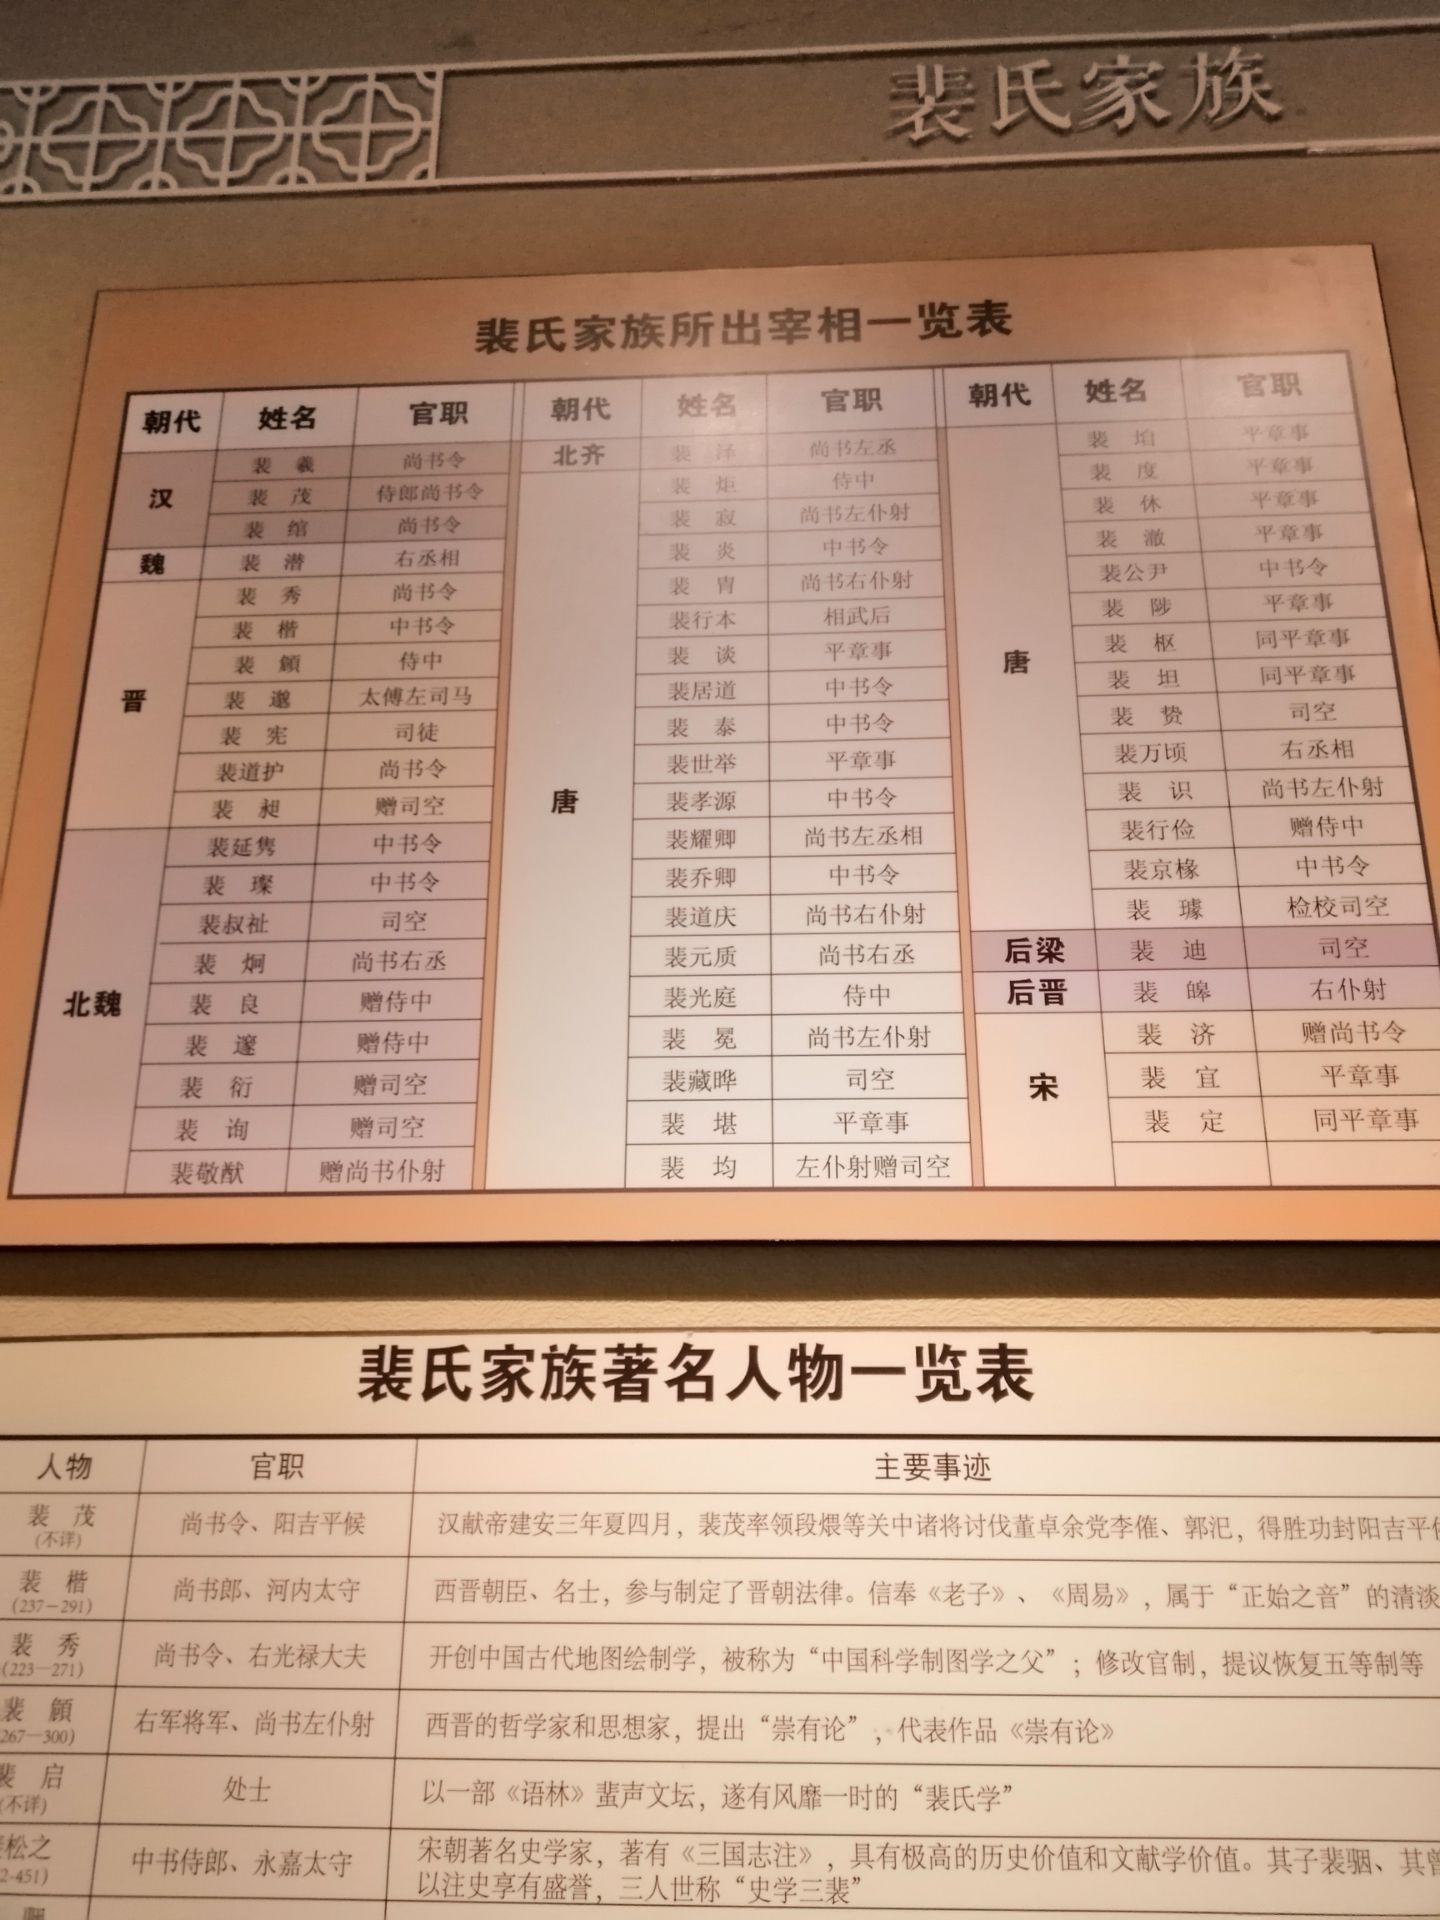 裴氏家族
裴氏家族所出宰相一览表
朝代 姓名 官职 朝代 姓名 官职 朝代 姓名 官职
汉
裴 羲 尚书令
裴 茂 侍郎尚书令
裴 绾 尚书令
魏
裴 潜 右丞相
晋
裴 秀 尚书令
裴 楷 中书令
裴 頠 侍中
裴 邈 太傅左司马
裴 宪 司徒
裴道护 尚书令
裴 昶 赠司空
北魏
裴延隽 中书令
裴 璨 中书令
裴叔祉 司空
裴 炯 尚书右丞
裴 良 赠侍中
裴 邃 赠侍中
裴 衍 赠司空
裴 询 赠司空
裴敬猷 赠尚书仆射
北齐
裴 泽 尚书左丞
唐
裴 炬 侍中
裴 寂 尚书左仆射
裴 炎 中书令
裴 胄 尚书右仆射
裴行本 相武后
裴 谈 平章事
裴居道 中书令
裴 泰 中书令
裴世举 平章事
裴孝源 中书令
裴耀卿 尚书左丞相
裴乔卿 中书令
裴道庆 尚书右仆射
裴元质 尚书右丞
裴光庭 侍中
裴 冕 尚书左仆射
裴藏晔 司空
裴 堪 平章事
裴 均 左仆射赠司空
唐
裴 垍 平章事
裴 度 平章事
裴 休 平章事
裴 澈 平章事
裴公尹 中书令
裴 陟 平章事
裴 枢 同平章事
裴 坦 同平章事
裴 贽 司空
裴万顷 右丞相
裴 识 尚书左仆射
裴行俭 赠侍中
裴京椽 中书令
裴 璩 检校司空
后梁
裴 迪 司空
后晋
裴 皞 右仆射
宋
裴 济 赠尚书令
裴 宜 平章事
裴 定 同平章事
裴氏家族著名人物一览表
人物 官职 主要事迹
裴 茂
(不详)
尚书令、阳吉平候
汉献帝建安三年夏四月，裴茂率领段煨等关中诸将讨伐董卓余党李傕、郭汜，得胜功封阳吉平
裴 楷
(237－291)
尚书郎、河内太守
西晋朝臣、名士，参与制定了晋朝法律。信奉《老子》、《周易》，属于“正始之音”的清淡
裴 秀
(223—271)
尚书令、右光禄大夫
开创中国古代地图绘制学，被称为“中国科学制图学之父”；修改官制，提议恢复五等制等
裴 頠
267—300)
右军将军、尚书左仆射
西晋的哲学家和思想家，提出“崇有论”，代表作品《崇有论》
裴 启
(不详)
处士
以一部《语林》蜚声文坛，遂有风靡一时的“裴氏学”
松之
2-451)
中书侍郎、永嘉太守
宋朝著名史学家，著有《三国志注》，具有极高的历史价值和文献学价值。其子裴骃、其曾
以注史享有盛誉，三人世称“史学三裴”